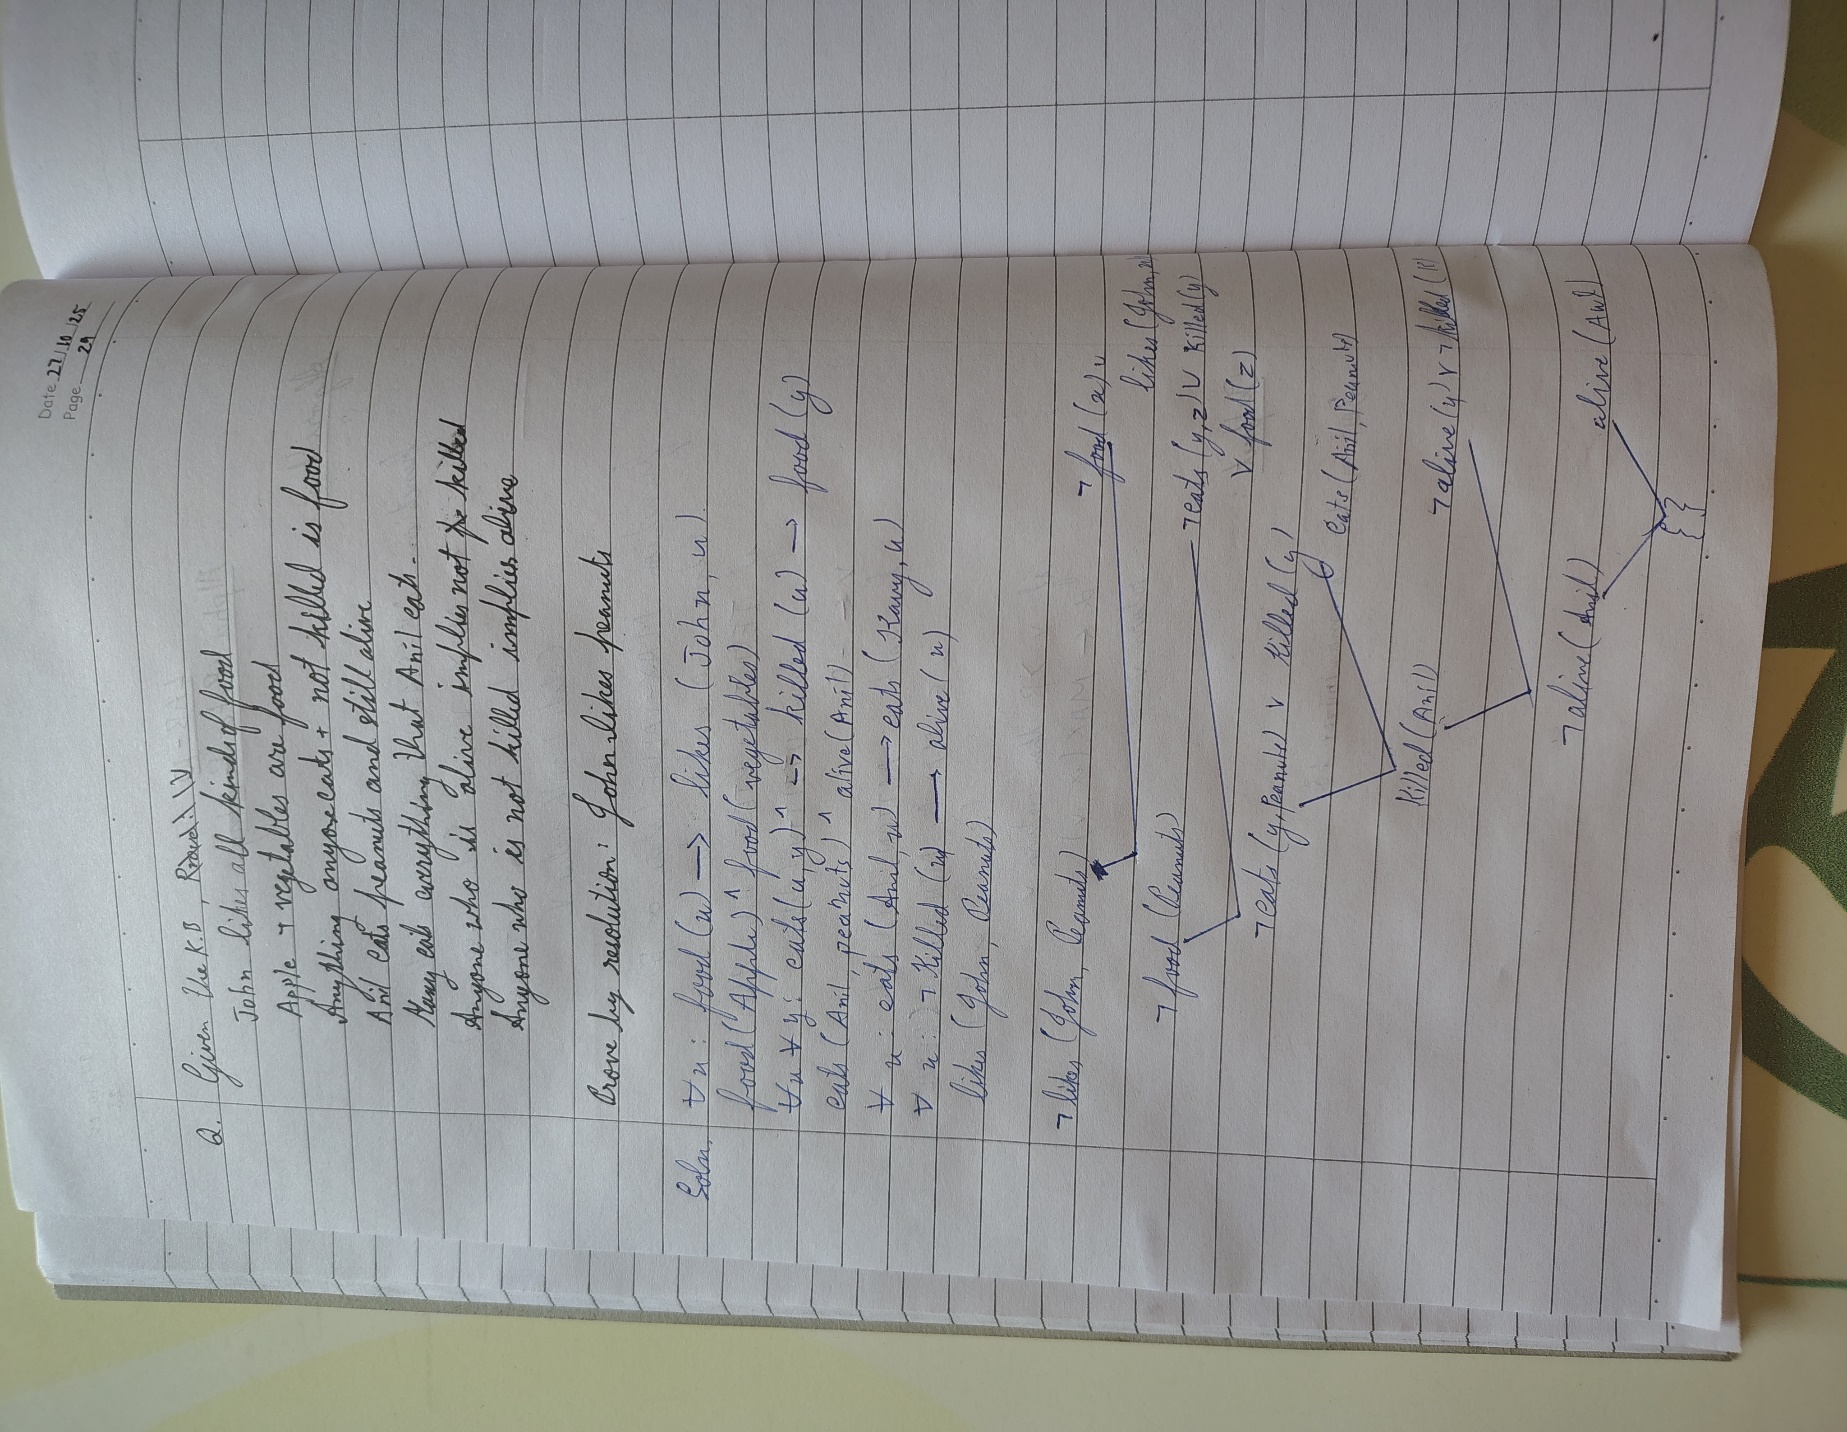 Date 27/10/25
Page 29
Q. Given the K.B,
John likes all kinds of food
Apple + vegetables are food
Anything anyone eats + not killed is food
Anil eats peanuts and still alive
Kavy eats everything that Anil eats.
Anyone who is alive implies not killed
Anyone who is not killed implies alive
Prove by resolution: John likes peanuts
Soln, ∀x : food (x) → likes (John, x)
food (Apple) ^ food (vegetables)
∀x ∀y : eats (x, y) ^ ¬ killed (x) → food (y)
eats (Anil, peanuts) ^ alive (Anil)
∀ x : eats (Anil, x) → eats (Kavy, x)
∀ x : ¬ killed (x) → alive (x)
likes (John, Peanuts)
¬ likes (John, Peanuts) ¬ food (x) v
likes (John, x)
¬ food (Peanuts) ¬ eats (y, z) v killed (y)
v food (z)
¬ eats (y, Peanuts) v killed (y)
eats (Anil, Peanuts)
killed (Anil) ¬ alive (k) v ¬ killed (k)
¬ alive (Anil) alive (Anil)
{ }